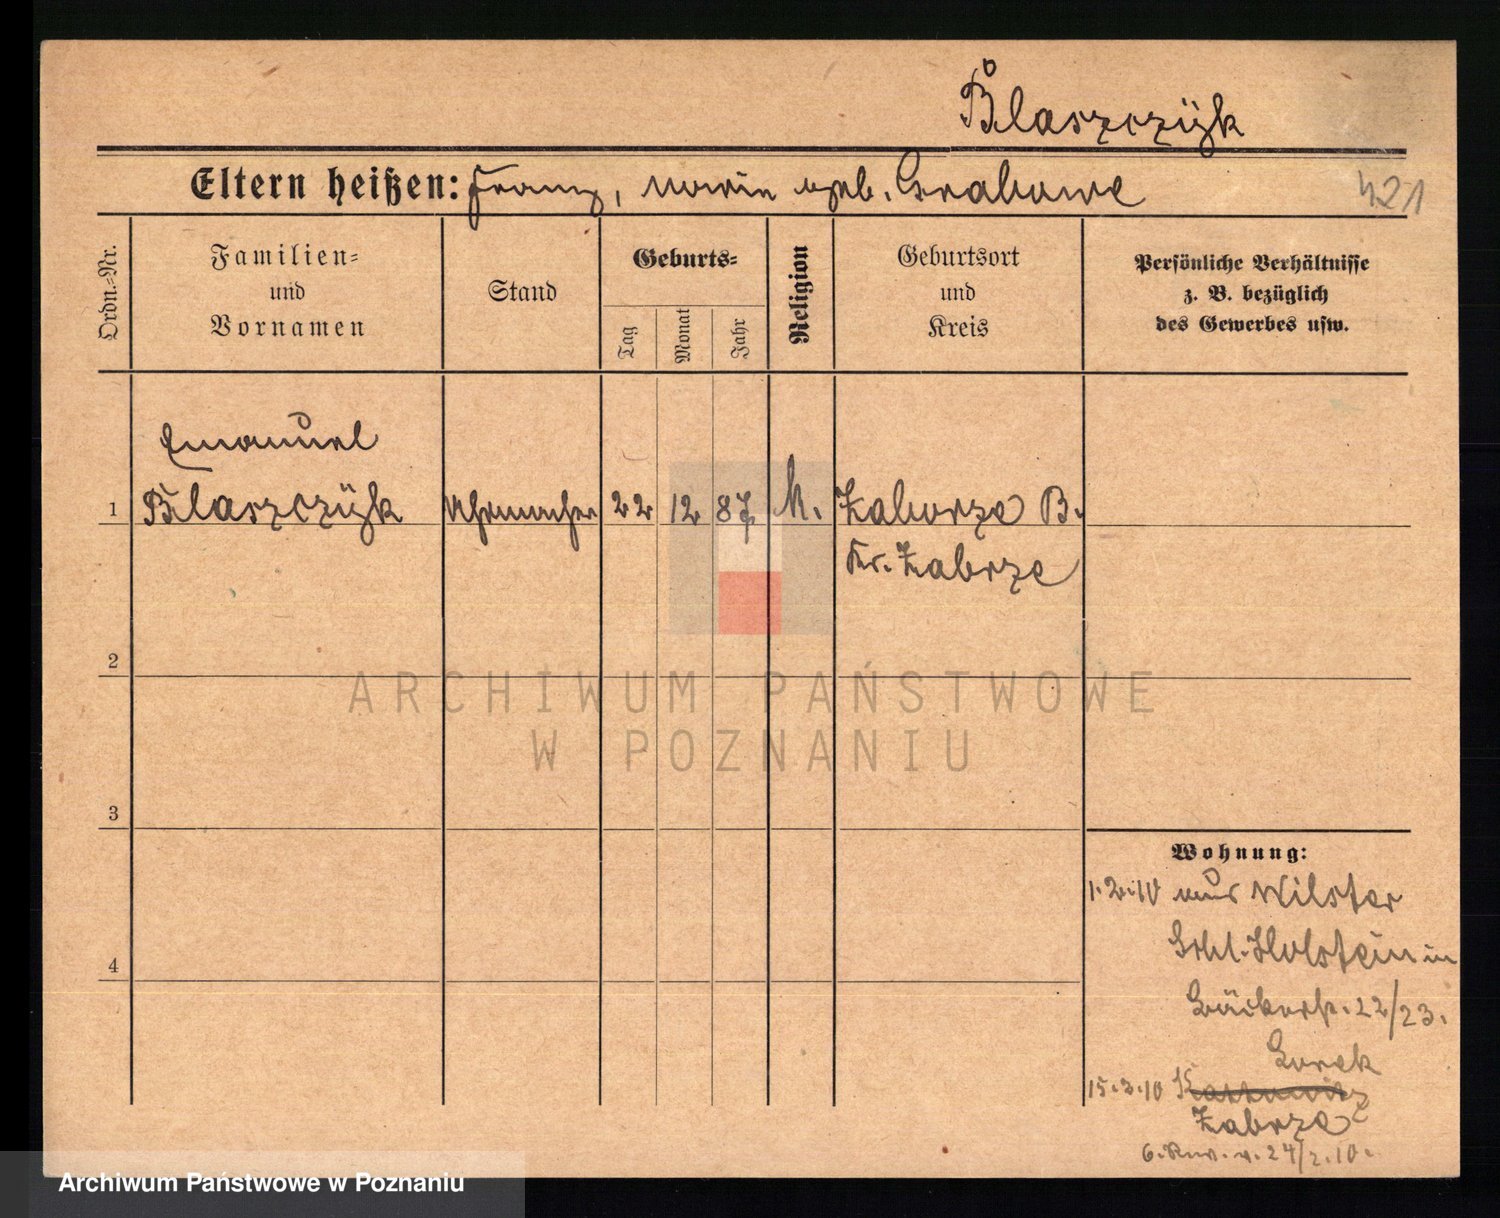 Blaszczÿk
Eltern heißen: Franz, Marie geb. Grabowe
421
Ordn.-Nr.
Familien-
und
Vornamen
Stand
Geburts-
Tag
Monat
Jahr
Religion
Geburtsort
und
Kreis
Persönliche Verhältnisse
z. B. bezüglich
des Gewerbes usw.
Emanuel
1 Blaszczÿk Uhrmacher 22 12 87 k. Zaborze B.
Kr. Zabrze
2
ARCHIWUM PAŃSTWOWE
W POZNANIU
3
Wohnung:
1.2.10 aus Wilster
Schl. Holstein in
4
Bäckerstr. 22/23.
Gorek
15.2.10 Kattowitz
Zabrze
24/2.10.
Archiwum Państwowe w Poznaniu